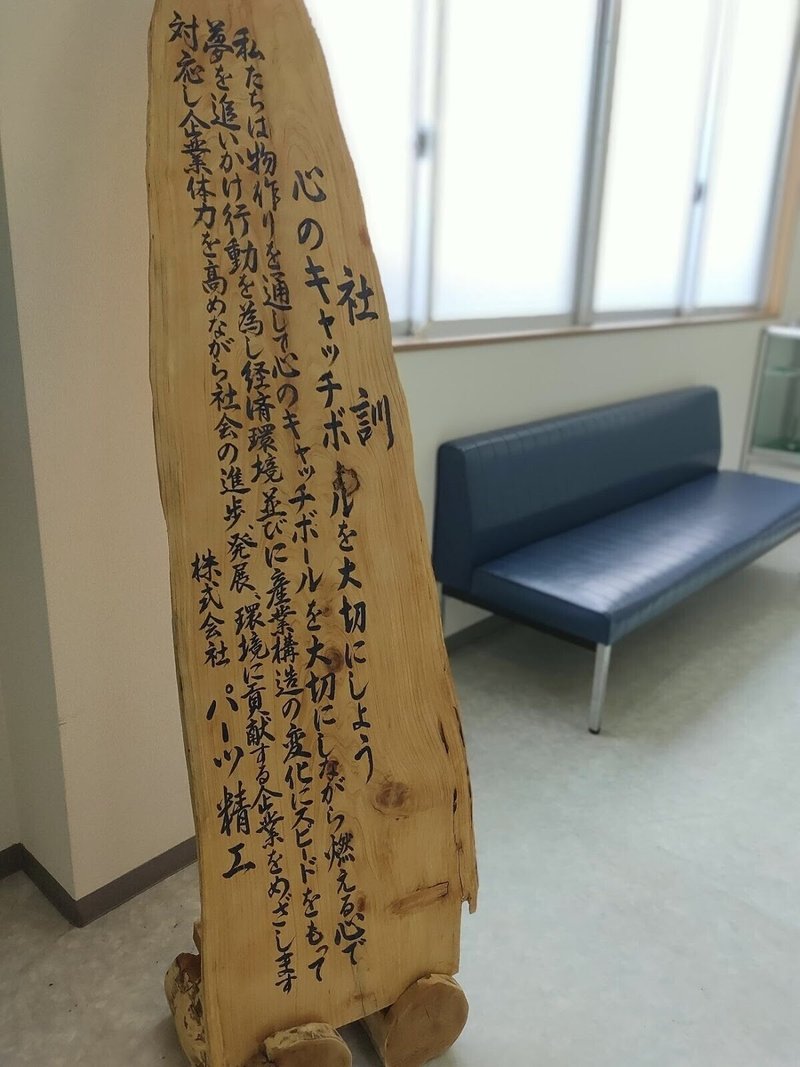 社訓
心のキャッチボールを大切にしよう
私たちは物作りを通して心のキャッチボールを大切にしながら燃える心で
夢を追いかけ行動を為し経済環境並びに産業構造の変化にスピードをもって
対応し企業体力を高めながら社会の進歩、発展、環境に貢献する企業をめざします
株式会社 パーツ精工